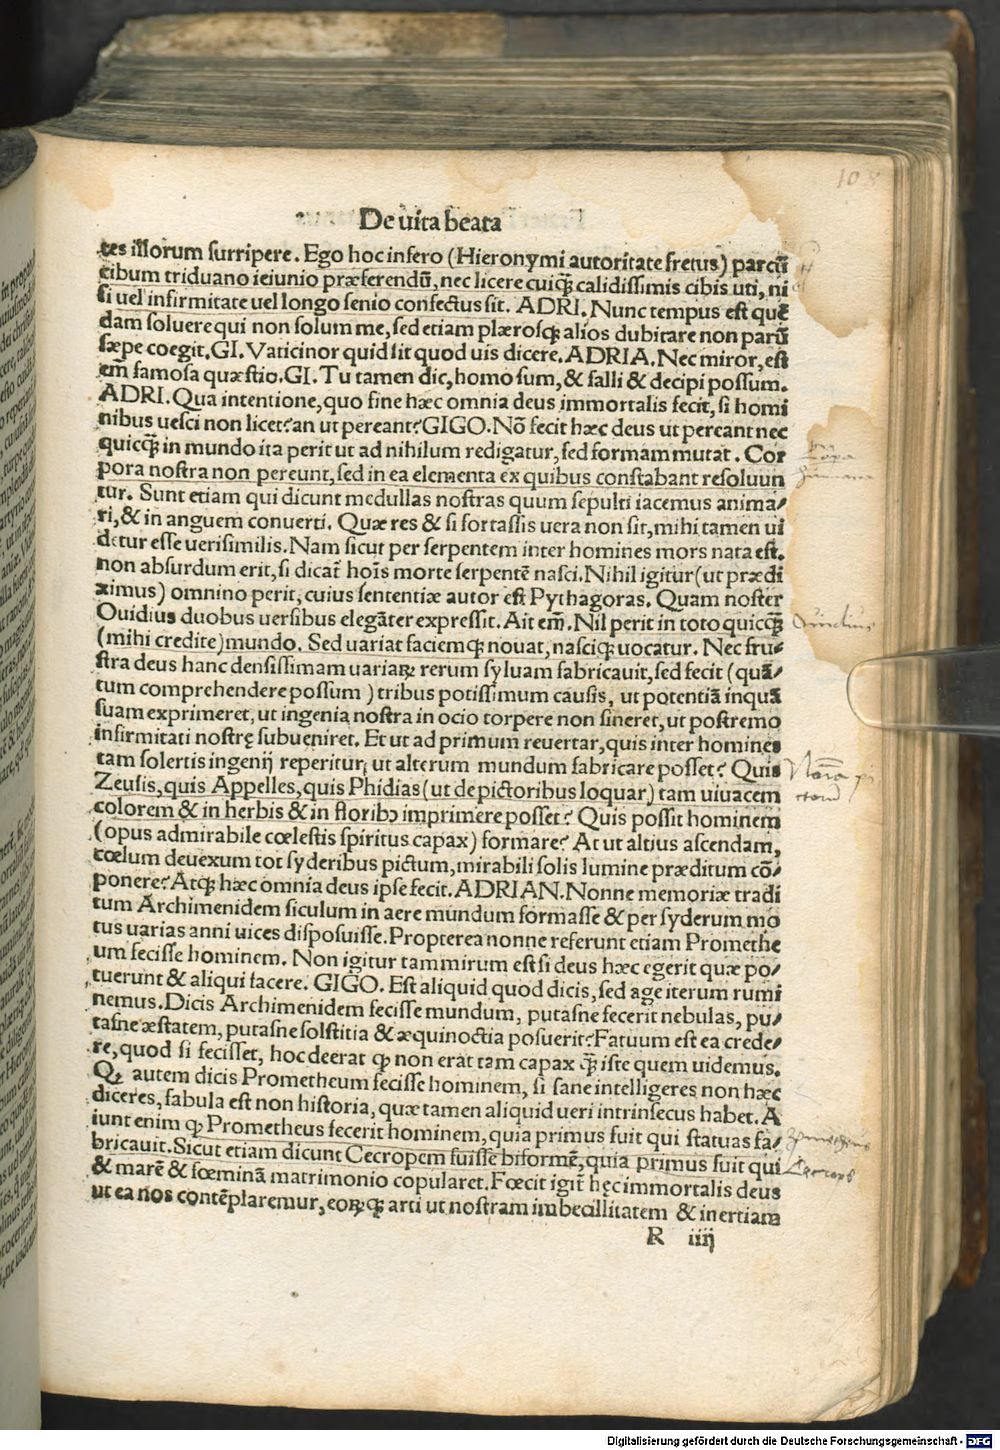 108
De uita beata
tes illorum surripere. Ego hoc infero (Hieronymi autoritate fretus) parcū
cibum triduano ieiunio præferendū, nec licere cuiꝗ̃ calidissimis cibis uti, ni
si uel infirmitate uel longo senio confectus sit. ADRI. Nunc tempus est quē
dam soluere qui non solum me, sed etiam plærosqꝫ alios dubitare non parū
sæpe coegit. GI. Vaticinor quid sit quod uis dicere. ADRIA. Nec miror, est
em̄ famosa quæstio. GI. Tu tamen dic, homo sum, & falli & decipi possum.
ADRI. Qua intentione, quo fine hæc omnia deus immortalis fecit, si homi
nibus uesci non licet? an ut pereant? GIGO. Nō fecit hæc deus ut pereant nec
quicꝗ̃ in mundo ita perit ut ad nihilum redigatur, sed formam mutat. Cor
pora nostra non pereunt, sed in ea elementa ex quibus constabant resoluun
tur. Sunt etiam qui dicunt medullas nostras quum sepulti iacemus anima/
ri, & in anguem conuerti. Quæ res & si fortassis uera non sit, mihi tamen ui
detur esse uerisimilis. Nam sicut per serpentem inter homines mors nata est,
non absurdum erit, si dicat̄ hoīs morte serpentē nasci. Nihil igitur (ut prædi
ximus) omnino perit, cuius sententiæ autor est Pythagoras. Quam noster
Ouidius duobus uersibus elegāter expressit. Ait em̄. Nil perit in toto quicꝗ̃
Ouidius
(mihi credite) mundo. Sed uariat faciemqꝫ nouat, nasciqꝫ uocatur. Nec fru/
stra deus hanc densissimam uariaꝝ rerum syluam fabricauit, sed fecit (quā/
tum comprehendere possum) tribus potissimum causis, ut potentiā inquā
suam exprimeret, ut ingenia nostra in ocio torpere non sineret, ut postremo
infirmitati nostrę subueniret. Et ut ad primum reuertar, quis inter homines
tam solertis ingenij reperitur, ut alterum mundum fabricare posset? Quis
Zeusis, quis Appelles, quis Phidias (ut de pictoribus loquar) tam uiuacem
colorem & in herbis & in floribꝰ imprimere posset? Quis possit hominem
(opus admirabile cœlestis spiritus capax) formare? At ut altius ascendam,
cœlum deuexum tot syderibus pictum, mirabili solis lumine præditum cō/
ponere? Atqꝫ hæc omnia deus ipse fecit. ADRIAN. Nonne memoriæ tradi
tum Archimenidem siculum in aere mundum formasse & per syderum mo
tus uarias anni uices disposuisse. Propterea nonne referunt etiam Promethe
um fecisse hominem. Non igitur tam mirum est si deus hæc egerit quæ po/
tuerunt & aliqui facere. GIGO. Est aliquid quod dicis, sed age iterum rumi
nemus. Dicis Archimenidem fecisse mundum, putasne fecerit nebulas, pu/
tasne æstatem, putasne solstitia & æquinoctia posuerit? Fatuum est ea crede/
re, quod si fecisset, hoc deerat ꝙ non erat tam capax ꝗ̃ iste quem uidemus.
Qꝫ autem dicis Prometheum fecisse hominem, si sane intelligeres non hæc
diceres, fabula est non historia, quæ tamen aliquid ueri intrinsecus habet. A
iunt enim ꝙ Prometheus fecerit hominem, quia primus fuit qui statuas fa/
Prometheus
bricauit. Sicut etiam dicunt Cecropem fuisse biformē, quia primus fuit qui
Cecrops
& marē & fœminā matrimonio copularet. Fœcit igit̄ hęc immortalis deus
ut ea nos contēplaremur, eoꝝqꝫ arti ut nostram imbecillitatem & inertiam
R iiij
Digitalisierung gefördert durch die Deutsche Forschungsgemeinschaft - DFG